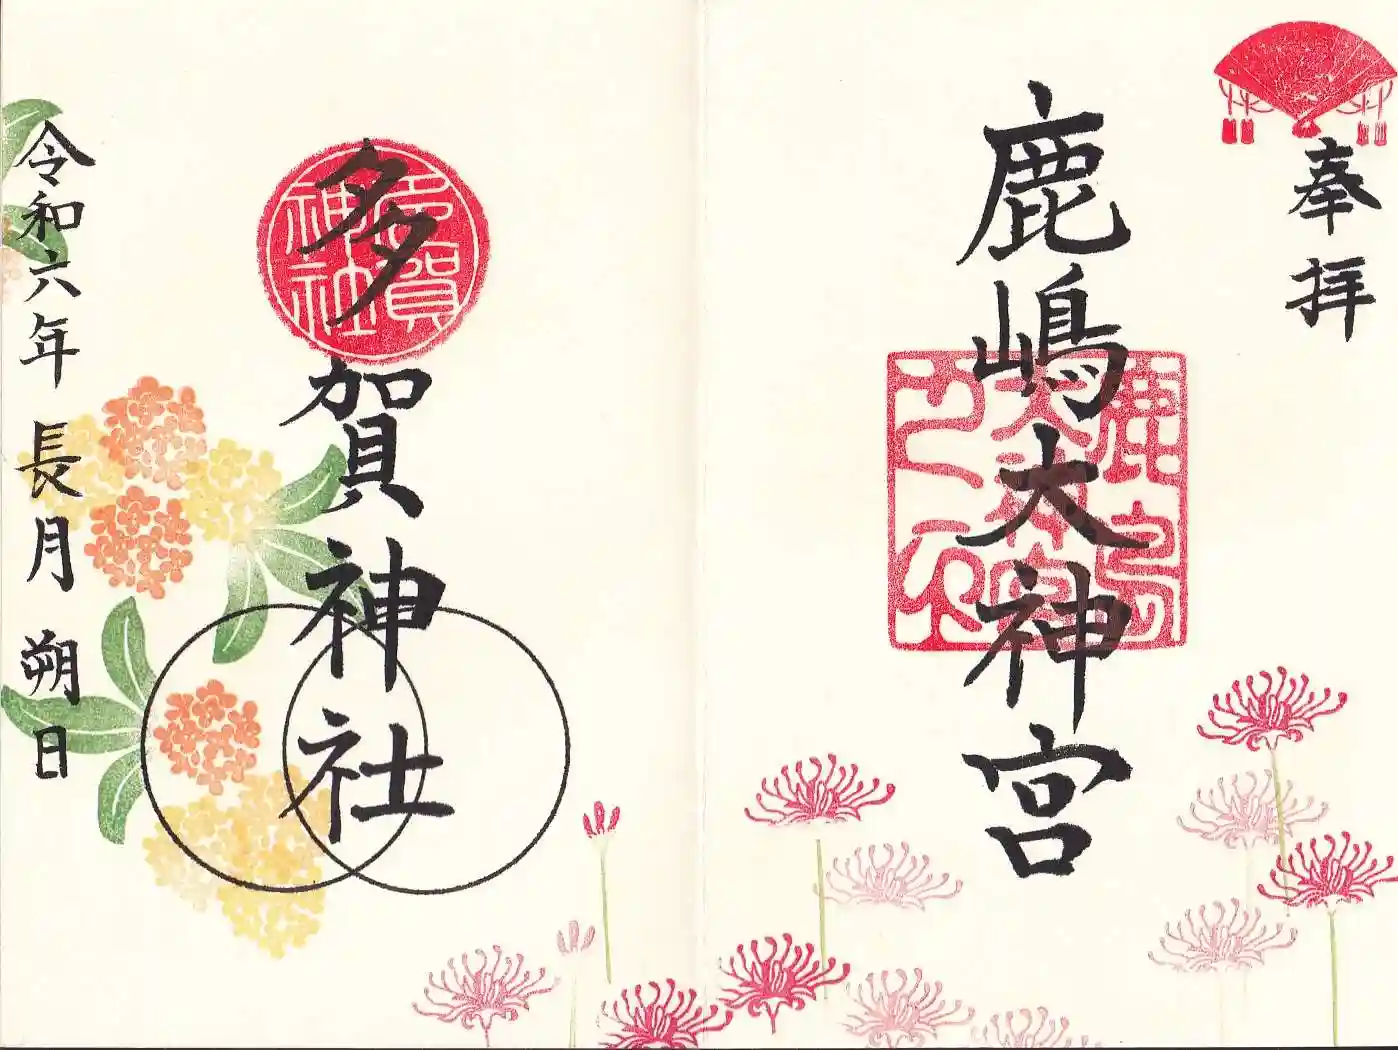 奉拝
鹿嶋大神宮
鹿島
大神宮
多賀神社
多賀
神社
令和六年長月朔日